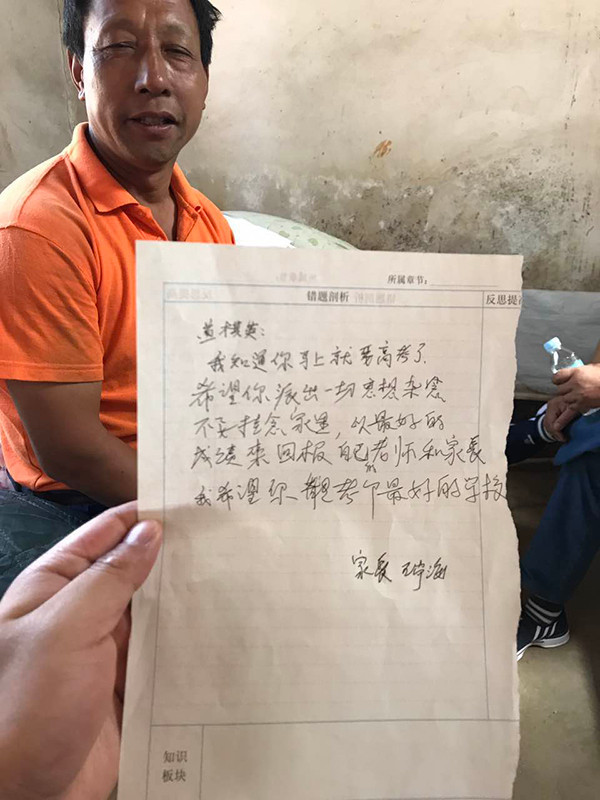 所属章节：
错题剖析 反思提
我知道你马上就要高考了
希望你派出一切思想杂念
不要挂念家里，以最好的
成绩来回报自己的老师和家长
我希望你 考个最好的学校
家长
知识
板块